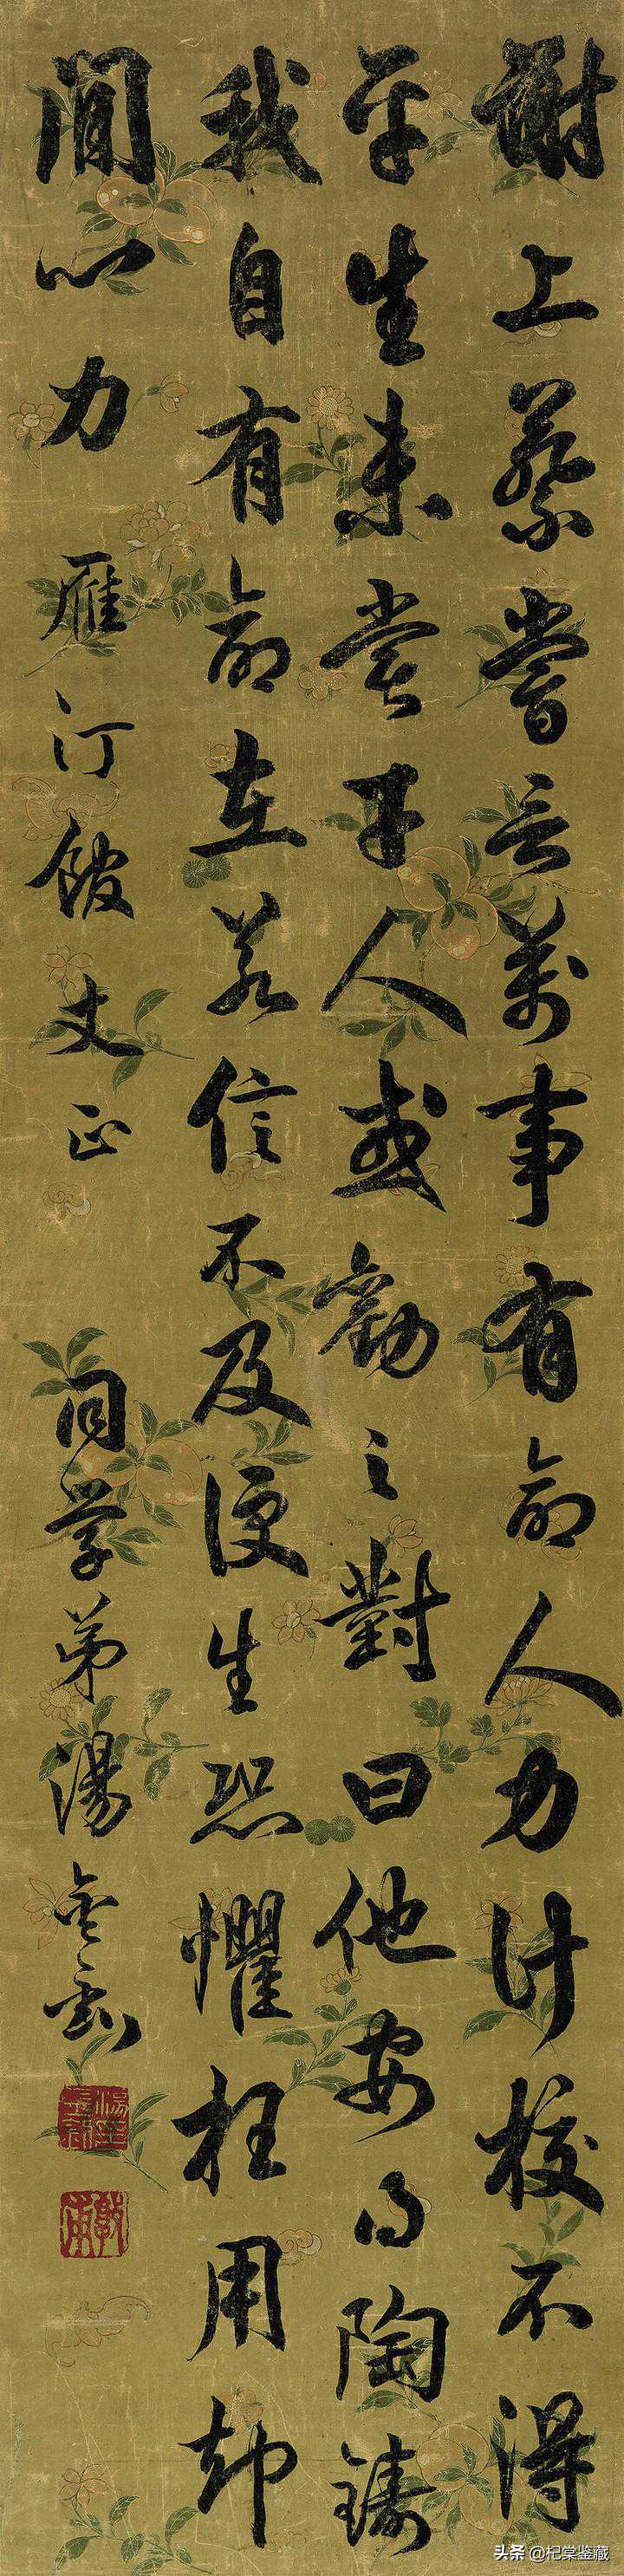 謝上蔡嘗云萬事有命人力計校不得
平生未嘗干人或勸之對曰他安得陶鑄
我自有命在若信不及便生恐懼枉用却
閒心力 雁汀館丈正 同學弟湯金釗
敦甫
头条 @杞棠鉴藏